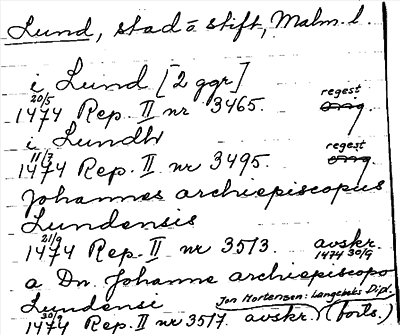 Lund, stad o stift, Malm. l.
i Lund [2 ggr]
20/5 regest
1474 Rep. II nr 3465. orig
i Lundh
11/3 regest
1474 Rep. II nr 3495. orig
Johannes archiepiscopus
Lundensis
21/9
1474 Rep. II nr 3513. avskr.
1474 30/9
a Dn. Johanne archiepiscopo
Lundensi Jon Mortensen: Langebeks Dipl.
30/9
1474 Rep. II nr 3517. avskr. (forts.)